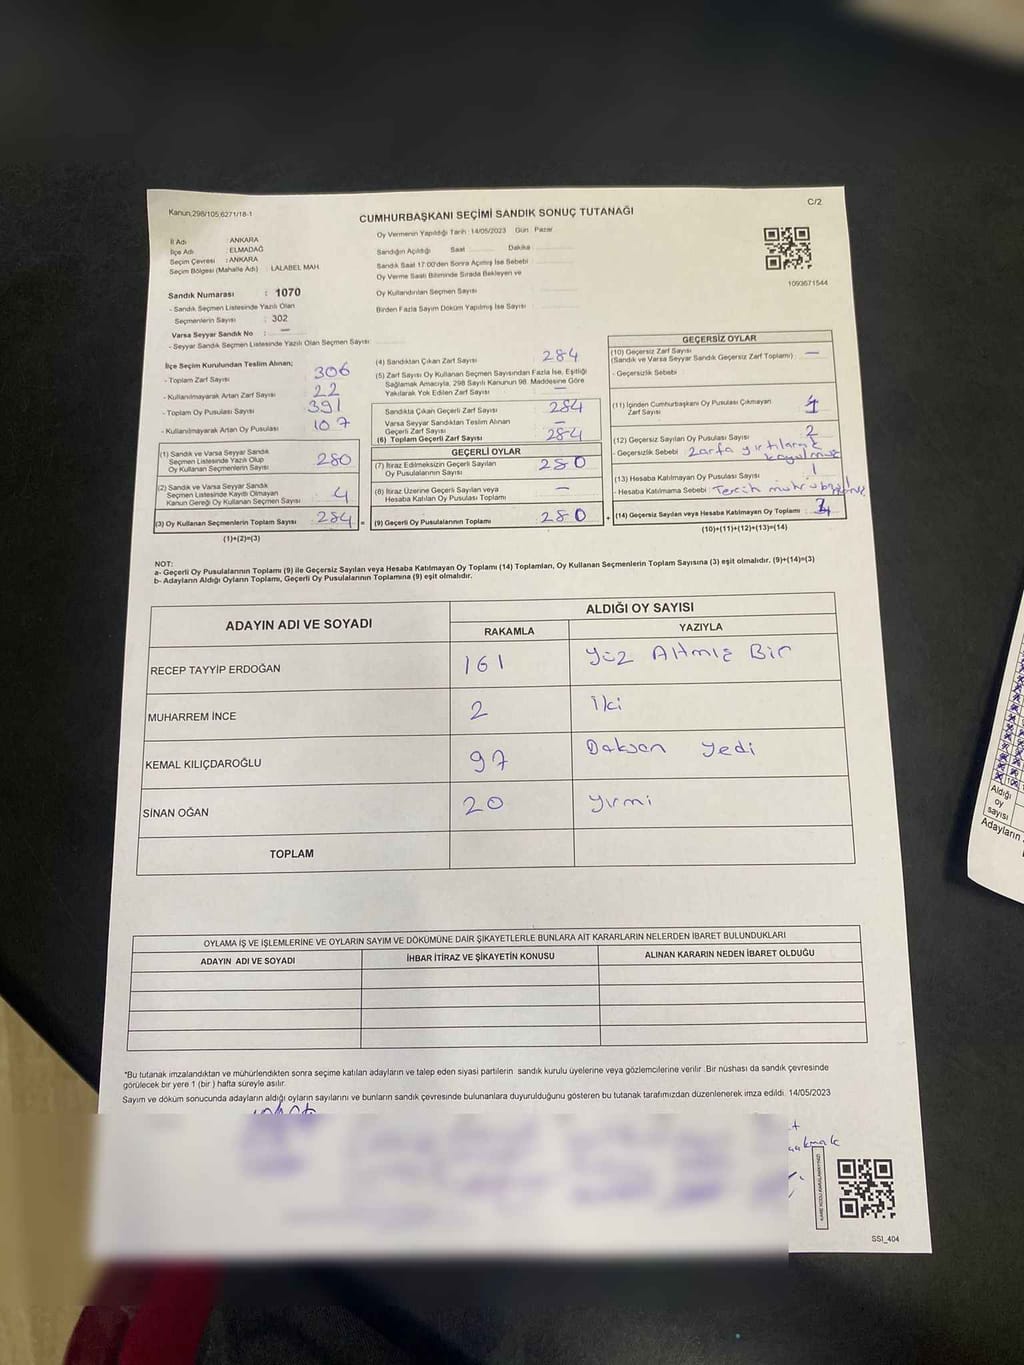 Kanun;298/105;6271/18-1
C/2
CUMHURBAŞKANI SEÇİMİ SANDIK SONUÇ TUTANAĞI
Oy Vermenin Yapıldığı Tarih : 14/05/2023 Gün : Pazar
İl Adı : ANKARA
İlçe Adı : ELMADAĞ
Seçim Çevresi : ANKARA
Seçim Bölgesi (Mahalle Adı) : LALABEL MAH
Sandığın Açıldığı Saat Dakika
Sandık Saat 17:00'den Sonra Açılmış İse Sebebi
Oy Verme Saati Bitiminde Sırada Bekleyen ve
Oy Kullandırılan Seçmen Sayısı
Birden Fazla Sayım Döküm Yapılmış İse Sayısı
1093671544
Sandık Numarası : 1070
- Sandık Seçmen Listesinde Yazılı Olan
Seçmenlerin Sayısı : 302
Varsa Seyyar Sandık No : —
- Seyyar Sandık Seçmen Listesinde Yazılı Olan Seçmen Sayısı
İlçe Seçim Kurulundan Teslim Alınan;
- Toplam Zarf Sayısı 306
- Kullanılmayarak Artan Zarf Sayısı 22
- Toplam Oy Pusulası Sayısı 391
- Kullanılmayarak Artan Oy Pusulası 107
(1) Sandık ve Varsa Seyyar Sandık
Seçmen Listesinde Yazılı Olup
Oy Kullanan Seçmenlerin Sayısı 280
(2) Sandık ve Varsa Seyyar Sandık
Seçmen Listesinde Kayıtlı Olmayan
Kanun Gereği Oy Kullanan Seçmen Sayısı 4
(3) Oy Kullanan Seçmenlerin Toplam Sayısı 284 =
(1)+(2)=(3)
(4) Sandıktan Çıkan Zarf Sayısı 284
(5) Zarf Sayısı Oy Kullanan Seçmen Sayısından Fazla İse, Eşitliği
Sağlamak Amacıyla, 298 Sayılı Kanunun 98. Maddesine Göre
Yakılarak Yok Edilen Zarf Sayısı —
Sandıkta Çıkan Geçerli Zarf Sayısı 284
Varsa Seyyar Sandıktan Teslim Alınan
Geçerli Zarf Sayısı —
(6) Toplam Geçerli Zarf Sayısı 284
GEÇERLİ OYLAR
(7) İtiraz Edilmeksizin Geçerli Sayılan
Oy Pusulalarının Sayısı 280
(8) İtiraz Üzerine Geçerli Sayılan veya
Hesaba Katılan Oy Pusulası Toplamı —
(9) Geçerli Oy Pusulalarının Toplamı 280 +
GEÇERSİZ OYLAR
(10) Geçersiz Zarf Sayısı
(Sandık ve Varsa Seyyar Sandık Geçersiz Zarf Toplamı) —
- Geçersizlik Sebebi
(11) İçinden Cumhurbaşkanı Oy Pusulası Çıkmayan
Zarf Sayısı 1
(12) Geçersiz Sayılan Oy Pusulası Sayısı 2
- Geçersizlik Sebebi zarfa yırtılarak
koyulmuş
(13) Hesaba Katılmayan Oy Pusulası Sayısı 1
- Hesaba Katılmama Sebebi : Tercih mührü
(14) Geçersiz Sayılan veya Hesaba Katılmayan Oy Toplamı 4
(10)+(11)+(12)+(13)=(14)
NOT:
a- Geçerli Oy Pusulalarının Toplamı (9) ile Geçersiz Sayılan veya Hesaba Katılmayan Oy Toplamı (14) Toplamları, Oy Kullanan Seçmenlerin Toplam Sayısına (3) eşit olmalıdır. (9)+(14)=(3)
b- Adayların Aldığı Oyların Toplamı, Geçerli Oy Pusulalarının Toplamına (9) eşit olmalıdır.
ADAYIN ADI VE SOYADI
ALDIĞI OY SAYISI
RAKAMLA YAZIYLA
RECEP TAYYİP ERDOĞAN 161 Yüz Altmış Bir
MUHARREM İNCE 2 İki
KEMAL KILIÇDAROĞLU 97 Doksan yedi
SİNAN OĞAN 20 yirmi
TOPLAM
OYLAMA İŞ VE İŞLEMLERİNE VE OYLARIN SAYIM VE DÖKÜMÜNE DAİR ŞİKAYETLERLE BUNLARA AİT KARARLARIN NELERDEN İBARET BULUNDUKLARI
ADAYIN ADI VE SOYADI İHBAR İTİRAZ VE ŞİKAYETİN KONUSU ALINAN KARARIN NEDEN İBARET OLDUĞU
*Bu tutanak imzalandıktan ve mühürlendikten sonra seçime katılan adayların ve talep eden siyasi partilerin sandık kurulu üyelerine veya gözlemcilerine verilir. Bir nüshası da sandık çevresinde
görülecek bir yere 1 (bir ) hafta süreyle asılır.
Sayım ve döküm sonucunda adayların aldığı oyların sayılarını ve bunların sandık çevresinde bulunanlara duyurulduğunu gösteren bu tutanak tarafımızdan düzenlenerek imza edildi. 14/05/2023
SSI_404
Aldığı
oy
sayısı
Adayların